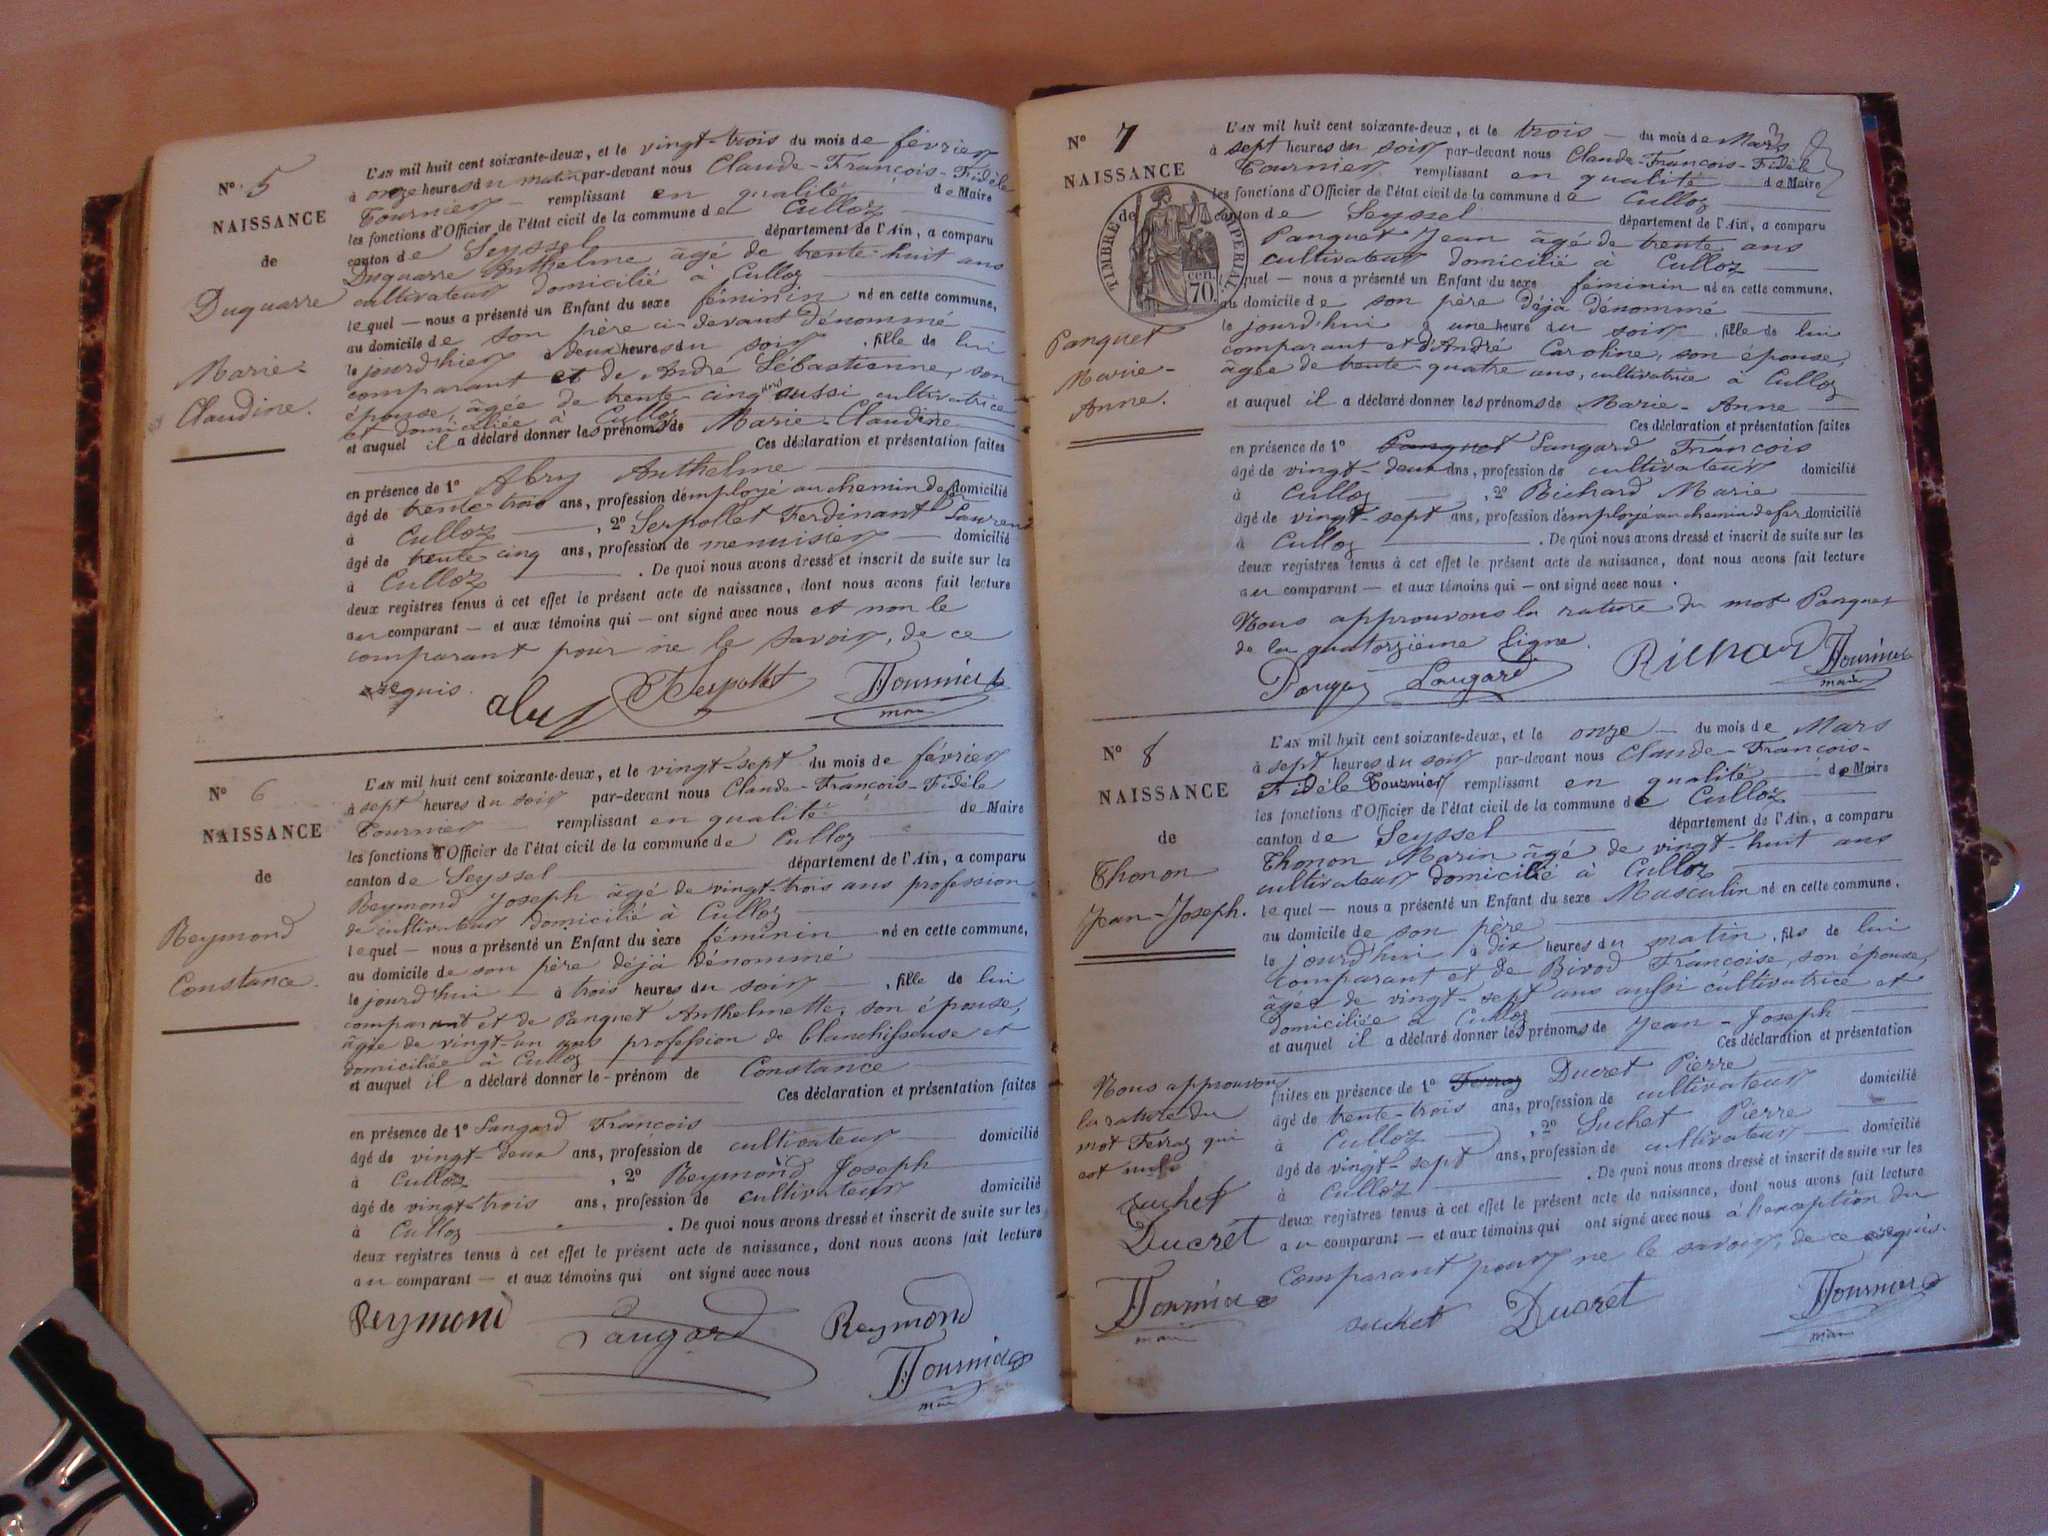 Nº 5
NAISSANCE
de
Duquarre
Marie-
Claudine.
L'AN mil huit cent soixante-deux, et le vingt-trois du mois de février
à onze heures du matin par-devant nous Claude-François-Fidèle
Tournier remplissant en qualité de Maire
les fonctions d'Officier de l'état civil de la commune de Culloz
canton de Seyssel département de l'Ain, a comparu
Duquarre Anthelme âgé de trente-huit ans
cultivateur domicilié à Culloz
lequel — nous a présenté un Enfant du sexe féminin né en cette commune,
au domicile de son père ci-devant dénommé
le jourd'hier à deux heures du soir, fille de lui
comparant et de André Sébastienne, son
épouse, âgée de trente cinq ans aussi cultivatrice
et domiciliée à Culloz
et auquel il a déclaré donner les prénoms de Marie-Claudine
Ces déclaration et présentation faites
en présence de 1º Abry Anthelme
âgé de trente-trois ans, profession d'employé au chemin de fer domicilié
à Culloz, 2º Serpollet Ferdinant Laurent
âgé de trente cinq ans, profession de menuisier domicilié
à Culloz. De quoi nous avons dressé et inscrit de suite sur les
deux registres tenus à cet effet le présent acte de naissance, dont nous avons fait lecture
au comparant — et aux témoins qui — ont signé avec nous et non le
comparant pour ne le savoir, de ce
requis.
Serpollet Tournier
maire
Nº 6
NAISSANCE
de
Reymond
Constance.
L'AN mil huit cent soixante-deux, et le vingt-sept du mois de février
à sept heures du soir par-devant nous Claude-François-Fidèle
Tournier remplissant en qualité de Maire
les fonctions d'Officier de l'état civil de la commune de Culloz
canton de Seyssel département de l'Ain, a comparu
Reymond Joseph âgé de vingt-trois ans profession
de cultivateur domicilié à Culloz
lequel — nous a présenté un Enfant du sexe féminin né en cette commune,
au domicile de son père déjà dénommé
le jourd'hui à trois heures du soir, fille de lui
comparant et de Panquet Anthelmette, son épouse,
âgée de vingt-un ans profession de blanchisseuse et
domiciliée à Culloz
et auquel il a déclaré donner le - prénom de Constance
Ces déclaration et présentation faites
en présence de 1º Langard François
âgé de vingt-deux ans, profession de cultivateur domicilié
à Culloz, 2º Reymond Joseph
âgé de vingt-trois ans, profession de cultivateur domicilié
à Culloz. De quoi nous avons dressé et inscrit de suite sur les
deux registres tenus à cet effet le présent acte de naissance, dont nous avons fait lecture
au comparant — et aux témoins qui ont signé avec nous
Reymond Langard Reymond
Tournier
maire
Nº 7
NAISSANCE
de
TIMBRE IMPERIAL
70 cen.
Panquet
Marie-
Anne.
L'AN mil huit cent soixante-deux, et le trois du mois de Mars
à sept heures du soir par-devant nous Claude-François-Fidèle
Tournier remplissant en qualité de Maire
les fonctions d'Officier de l'état civil de la commune de Culloz
canton de Seyssel département de l'Ain, a comparu
Panquet Jean âgé de trente ans
cultivateur domicilié à Culloz
lequel — nous a présenté un Enfant du sexe féminin né en cette commune,
au domicile de son père déjà dénommé
le jourd'hui à une heure du soir, fille de lui
comparant et d'André Caroline, son épouse,
âgée de trente-quatre ans, cultivatrice à Culloz
et auquel il a déclaré donner les prénoms de Marie-Anne
Ces déclaration et présentation faites
en présence de 1º Panquet Langard François
âgé de vingt-deux ans, profession de cultivateur domicilié
à Culloz, 2º Richard Marie
âgé de vingt-sept ans, profession d'employé au chemin de fer domicilié
à Culloz. De quoi nous avons dressé et inscrit de suite sur les
deux registres tenus à cet effet le présent acte de naissance, dont nous avons fait lecture
au comparant — et aux témoins qui — ont signé avec nous.
Nous approuvons la rature du mot Panquet
de la quatorzième ligne.
Langard Richard Tournier
maire
Nº 8
NAISSANCE
de
Thonon
Jean-Joseph.
L'AN mil huit cent soixante-deux, et le onze du mois de Mars
à sept heures du soir par-devant nous Claude-François-
Fidèle Tournier remplissant en qualité de Maire
les fonctions d'Officier de l'état civil de la commune de Culloz
canton de Seyssel département de l'Ain, a comparu
Thonon Marin âgé de vingt-huit ans
cultivateur domicilié à Culloz
lequel — nous a présenté un Enfant du sexe Masculin né en cette commune,
au domicile de son père
le jourd'hui à dix heures du matin, fils de lui
comparant et de Bivod Françoise, son épouse,
âgée de vingt-sept ans aussi cultivatrice et
domiciliée à Culloz
et auquel il a déclaré donner les prénoms de Jean-Joseph
Ces déclaration et présentation
faites en présence de 1º Ferraz Ducret Pierre
âgé de trente-trois ans, profession de cultivateur domicilié
à Culloz, 2º Suchet Pierre
âgé de vingt-sept ans, profession de cultivateur domicilié
à Culloz. De quoi nous avons dressé et inscrit de suite sur les
deux registres tenus à cet effet le présent acte de naissance, dont nous avons fait lecture
au comparant — et aux témoins qui ont signé avec nous à l'exception du
comparant pour ne le savoir, de ce requis.
suchet Ducret Tournier
maire
Nous approuvons
la rature du
mot Ferraz qui
est nulle
suchet
Ducret
Tournier
maire